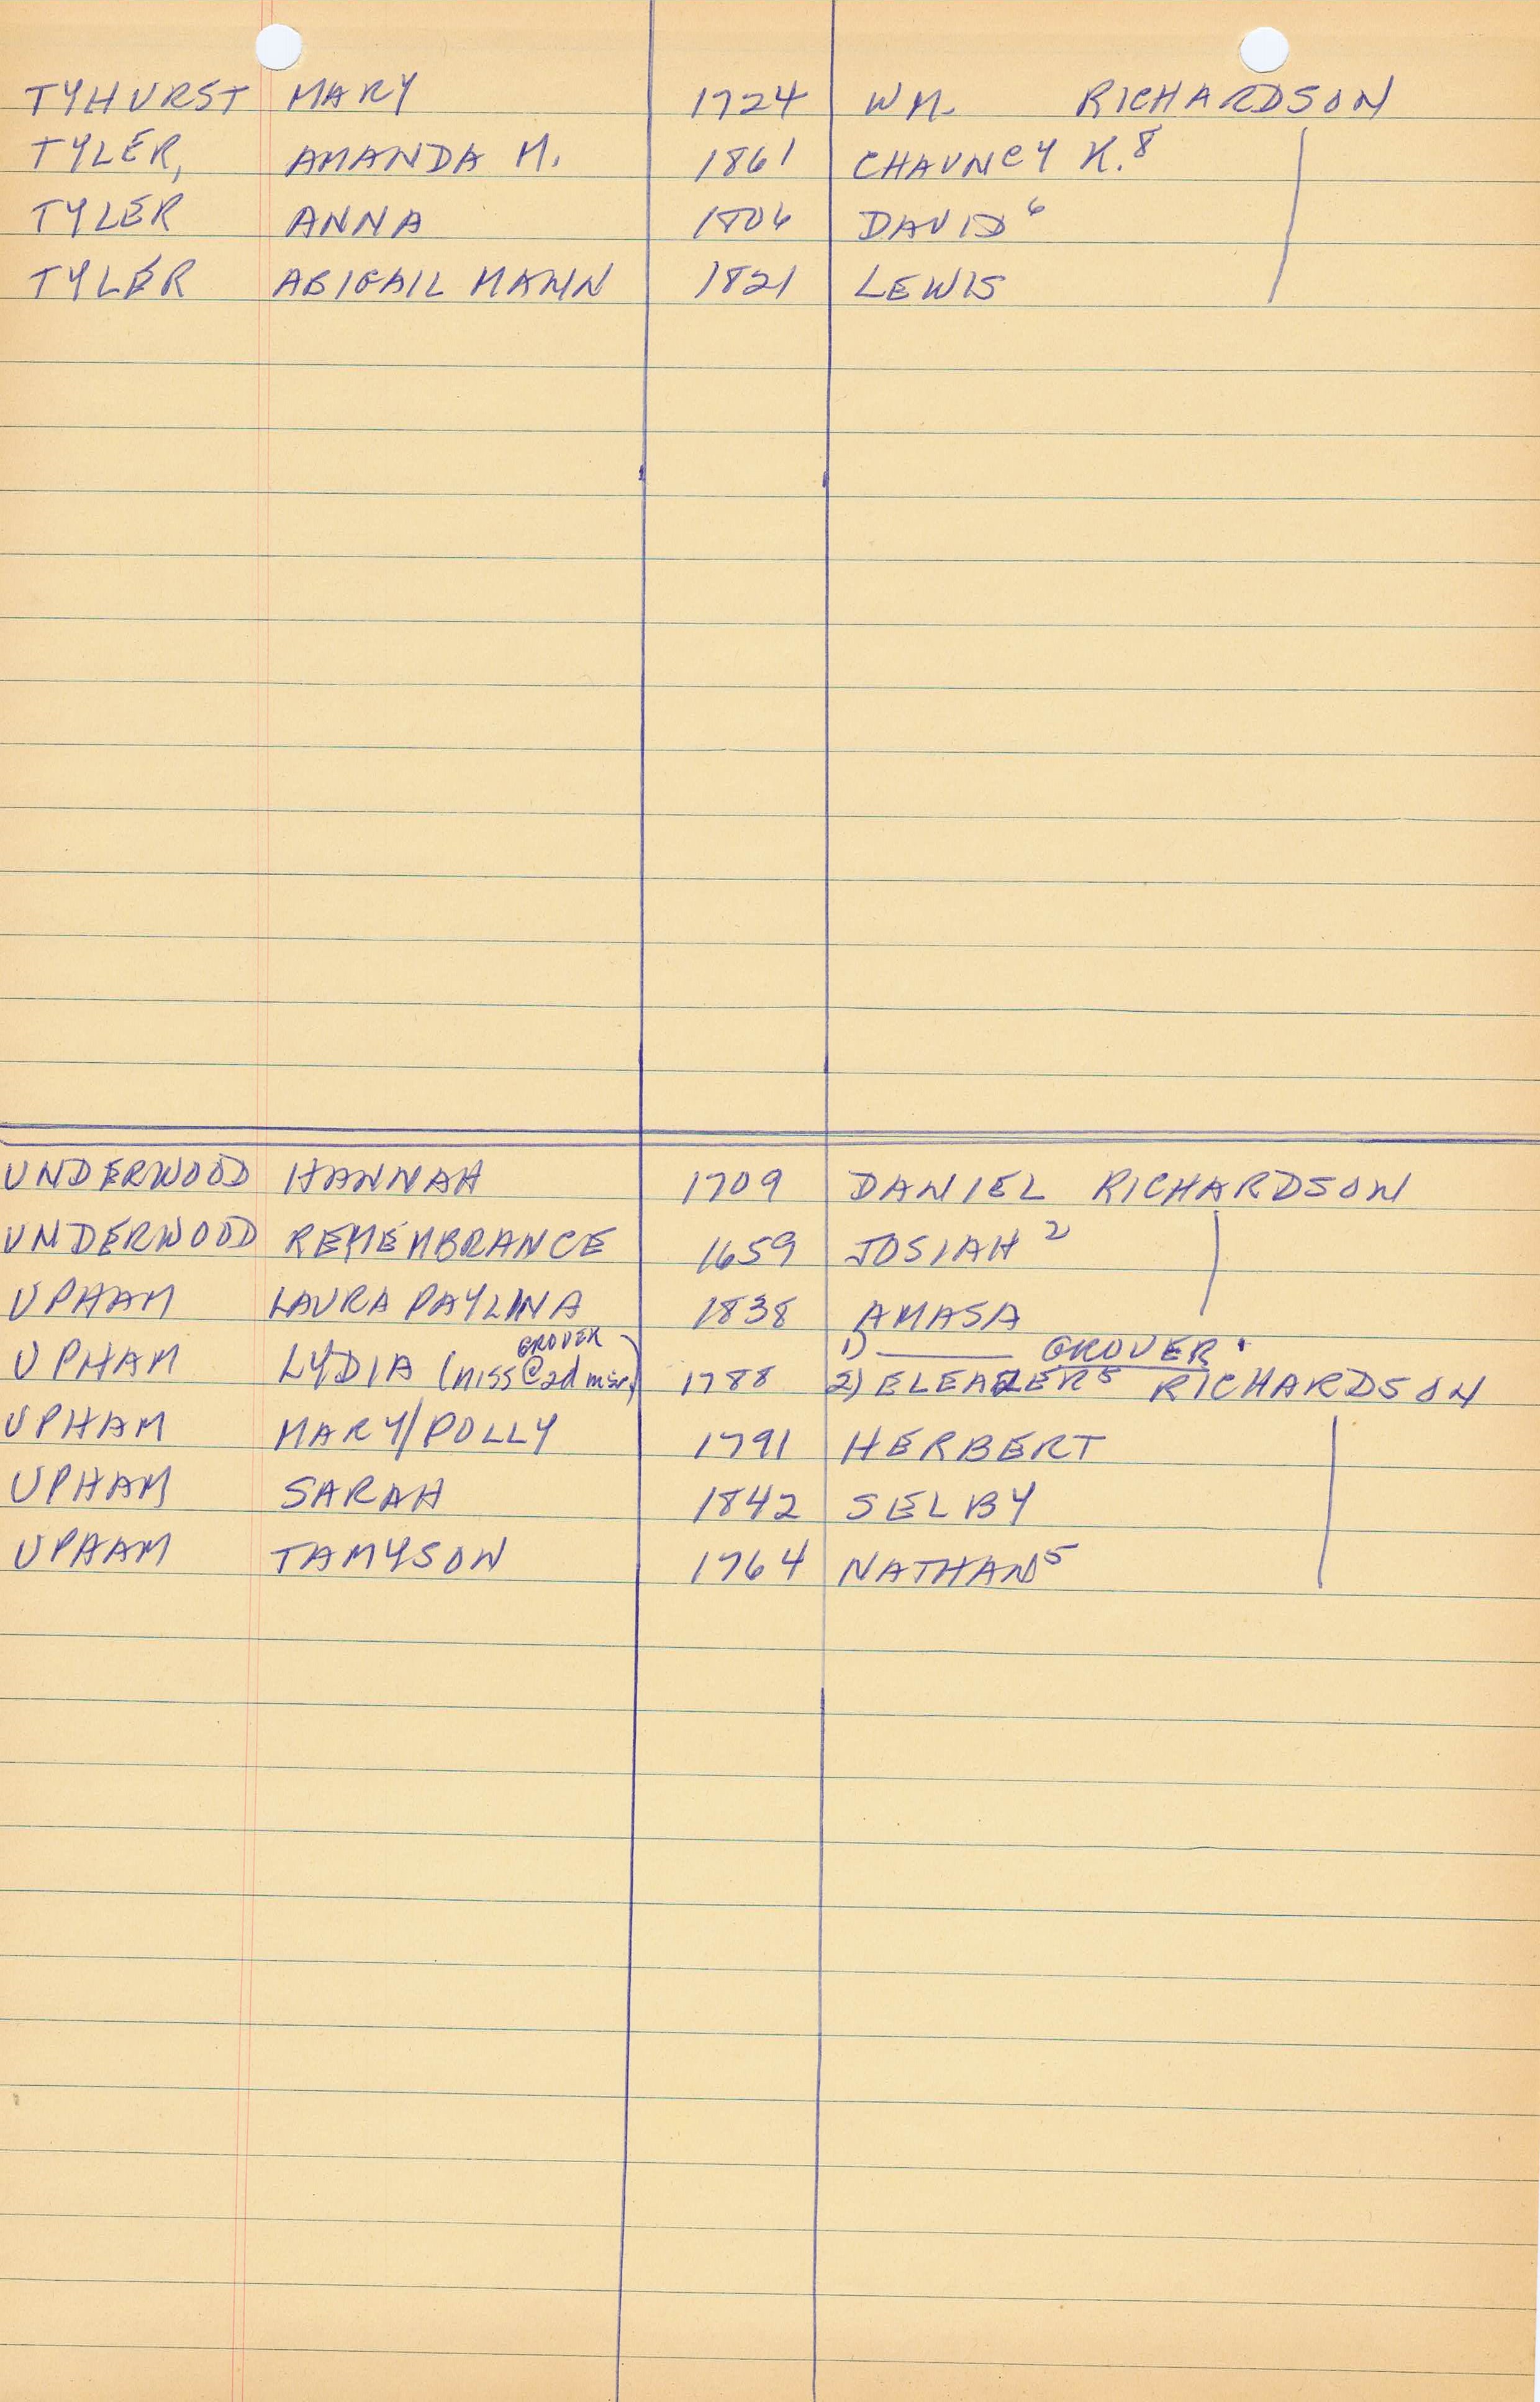 TYHURST MARY 1724 WM. RICHARDSON
TYLER, AMANDA M. 1861 CHAUNCY K.⁸
TYLER ANNA 1806 DAVID⁶
TYLER ABIGAIL MANN 1821 LEWIS
UNDERWOOD HANNAH 1709 DANIEL RICHARDSON
UNDERWOOD REMEMBRANCE 1659 JOSIAH²
UPHAM LAURA PAYLINA 1838 AMASA
GROVER 1) GROVER.
UPHAM LYDIA (miss @ 2d mar.) 1788 2) ELEAZER⁵ RICHARDSON
UPHAM MARY/POLLY 1791 HERBERT
UPHAM SARAH 1842 SELBY
UPHAM TAMYSON 1764 NATHAN⁵